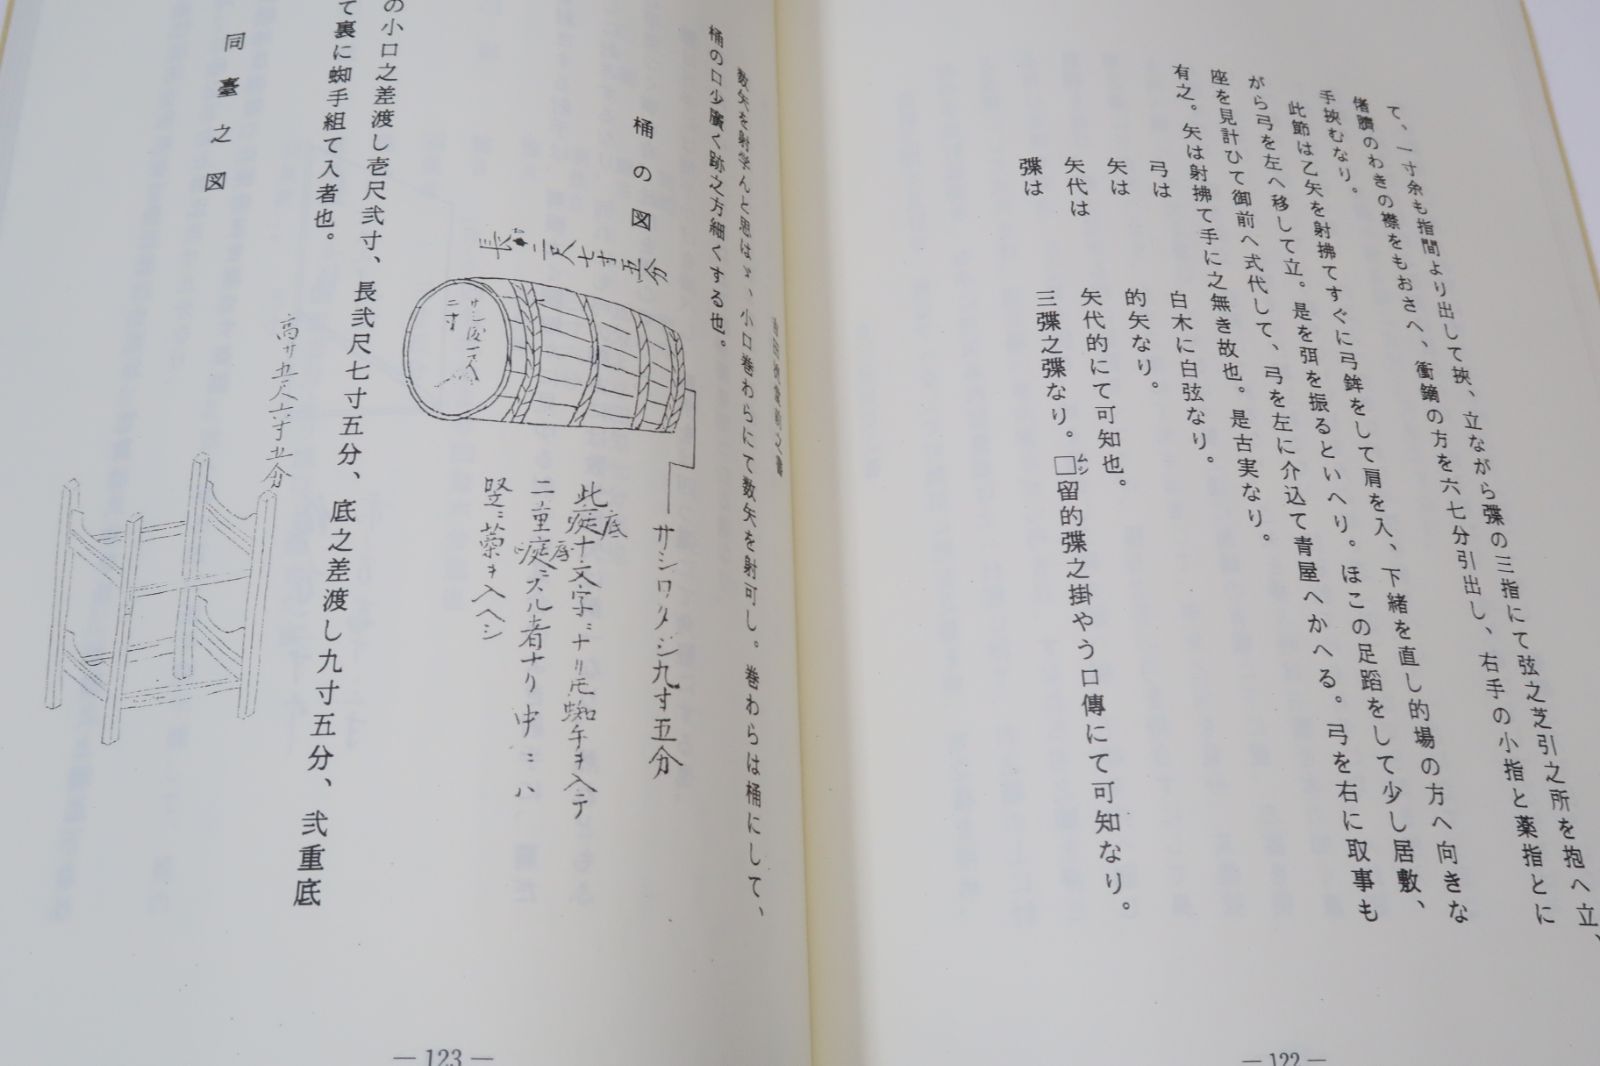 て、一寸余も指間より出して挾、立ながら弽の三指にて弦之芝引之所を抱へ立、
のわきの襟をもおさへ、衝鏑の方を六七分引出し、右手の小指と薬指とに
手挾むなり。
此節は乙矢を射拂てすぐに弓鉾をして肩を入、下緒を直し的場の方へ向きな
がら弓を左へ移して立。是を弭を振るといへり。ほこの足蹈をして少し居敷、
座を見計ひて御前へ式代して、弓を左に介込て青屋へかへる。弓を右に取事も
有之。矢は射拂て手に之無き故也。是古実なり。
弓は 白木に白弦なり。
矢は 的矢なり。
矢代は 矢代的にて可知也。
弽は 三弽之弽なり。□留的弽之掛やう口傳にて可知なり。
ムシ
― 122 ―
数矢を射学んと思はゞ、小口巻わらにて数矢を射可し。巻わらは桶にして、
桶の口少廣く跡之方細くする也。
桶の図
長サ二尺七寸五分
サシ渡一尺二寸
サシワタシ九寸五分
此底十文字ニナリ元蜘手ヲ入テ
二重底ニスル者ナリ中ニハ
竪ニ藁ヲ入ヘシ
の小口之差渡し壱尺弐寸、長弐尺七寸五分、底之差渡し九寸五分、弐重底
て裏に蜘手組て入者也。
同臺之図
高サ五尺六寸五分
― 123 ―